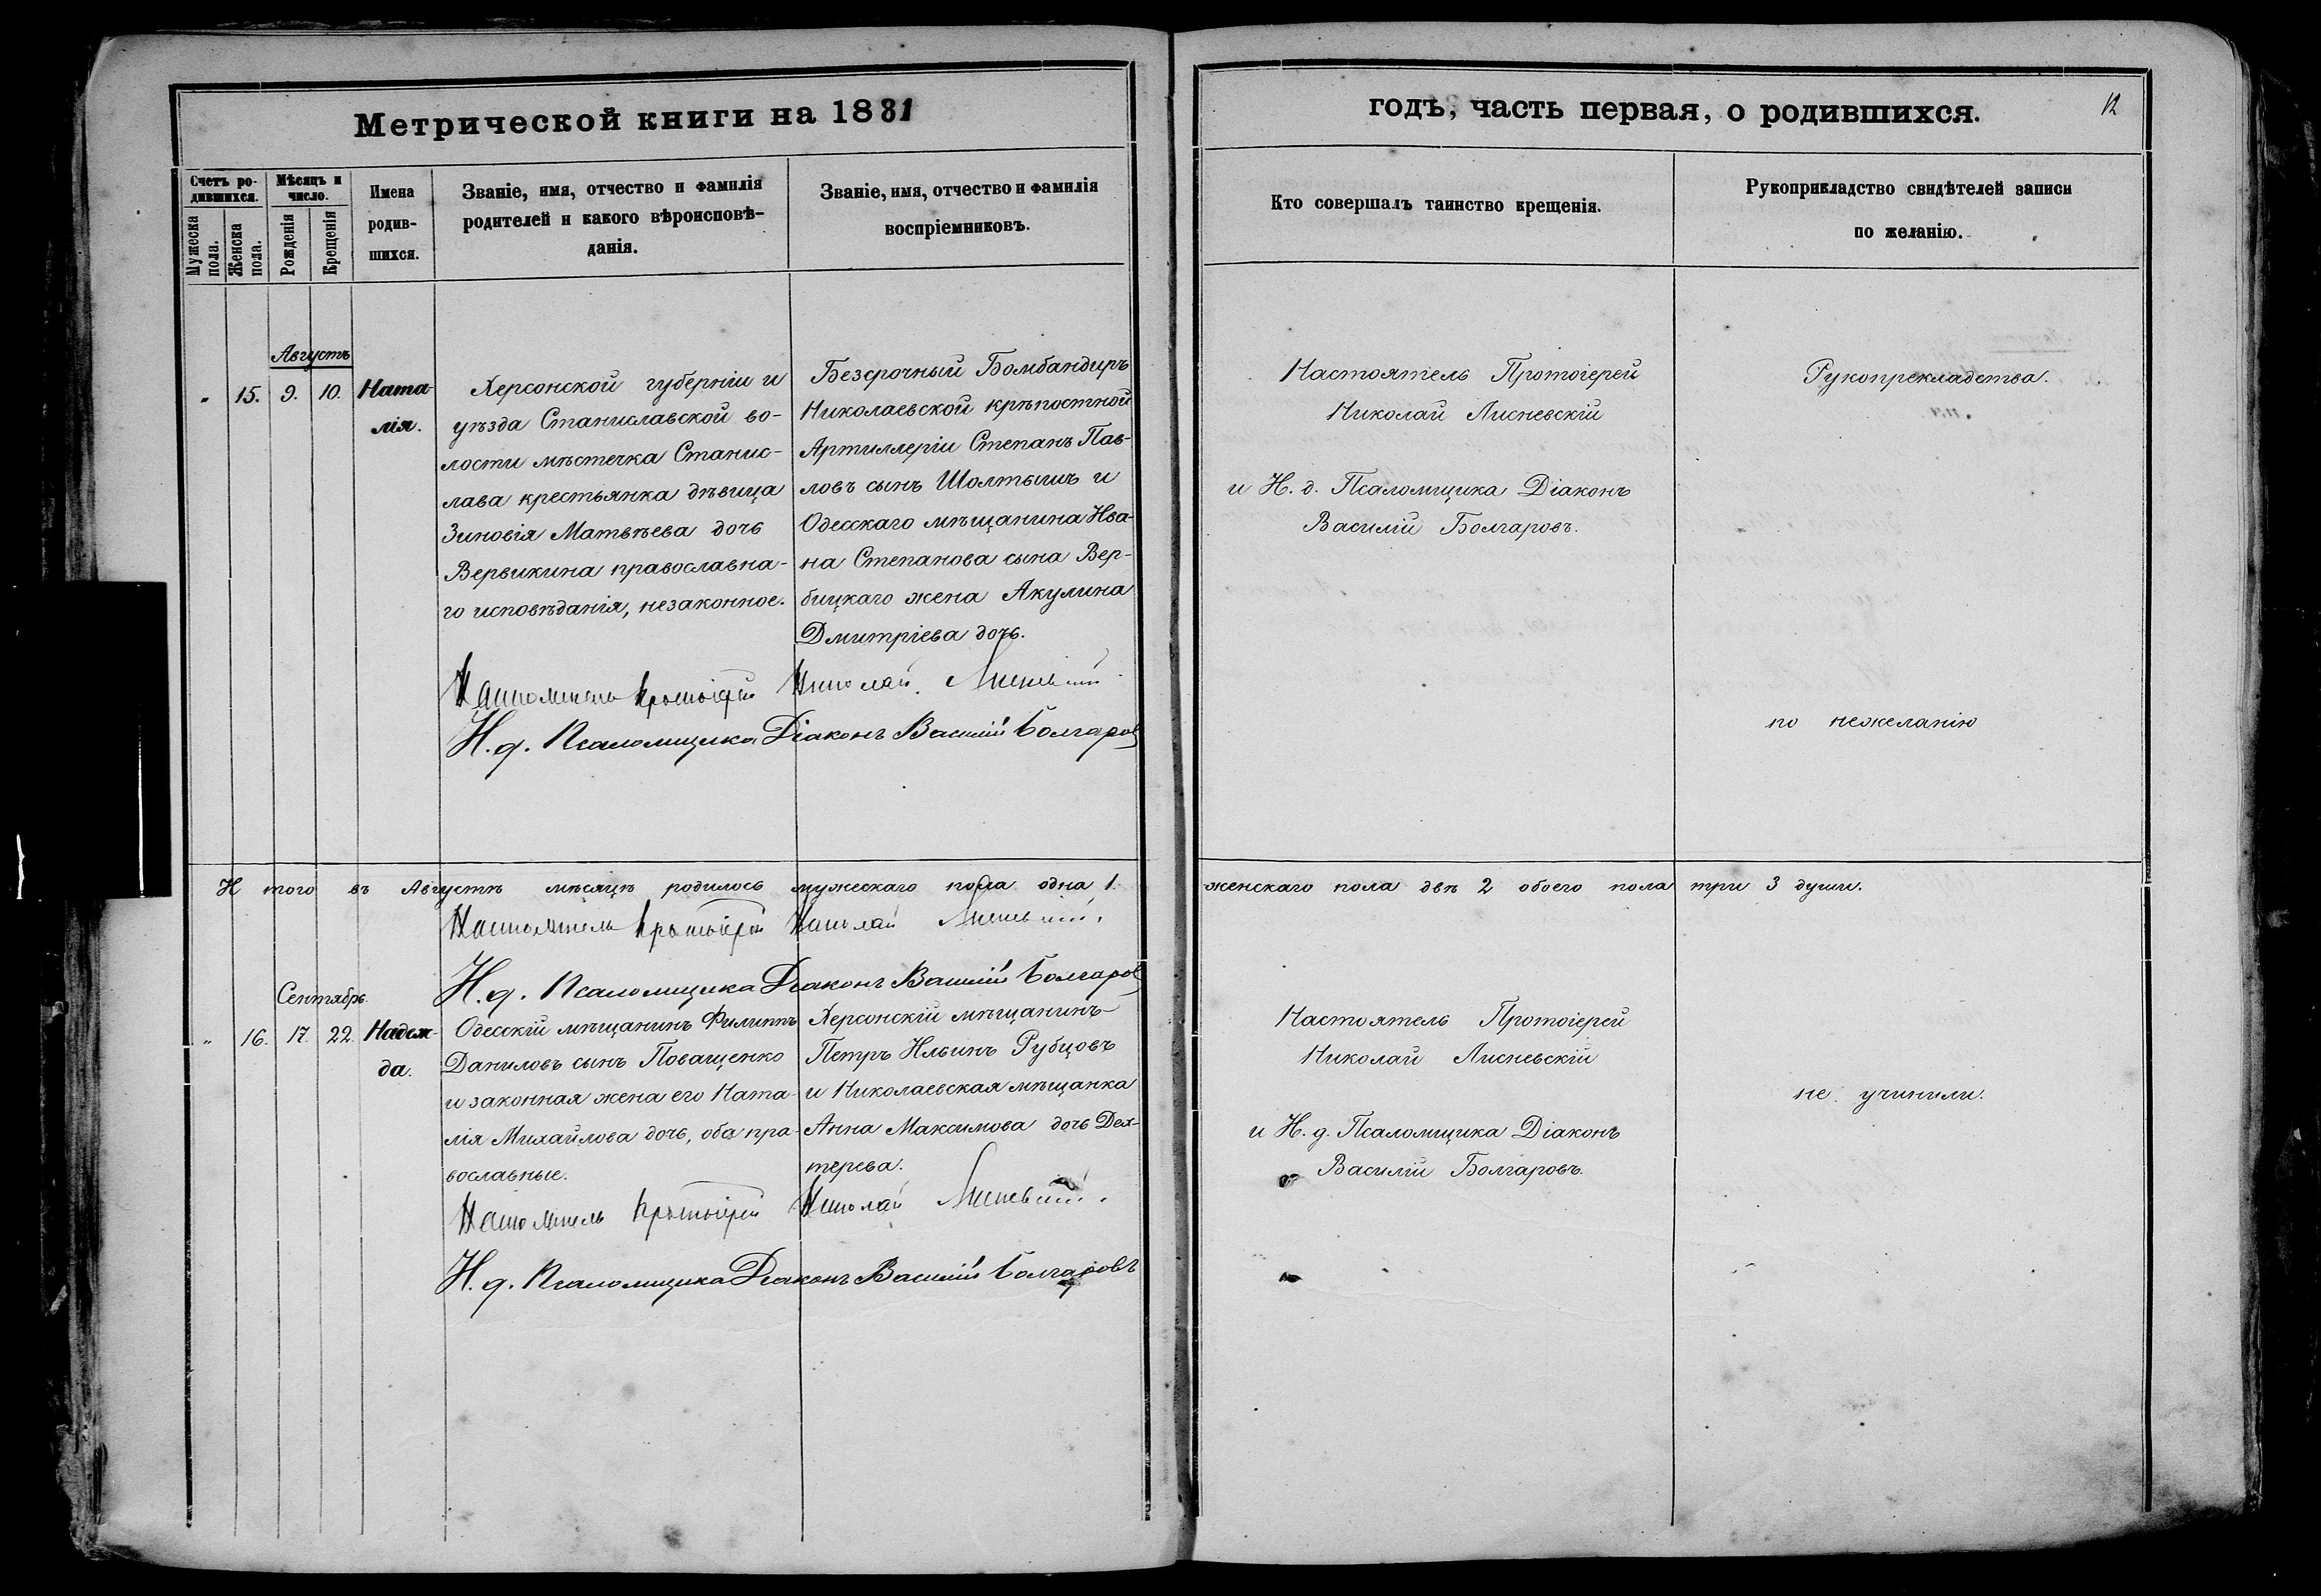 Метрической книги на 1881
Счетъ ро-
дившихся.
Мѣсяцъ и
число.
Мужеска
пола.
Женска
пола.
Рожденія
Крещенія
Имена
родив-
шихся.
Званіе, имя, отчество и фамилія
родителей и какого вѣроисповѣ-
данія.
Званіе, имя, отчество и фамилія
воспріемниковъ.
Августъ
" 15. 9. 10.
Ната-
лія.
Херсонской губерніи и
уѣзда Станиславской во-
лости мѣстечка Станис-
лава крестьянка дѣвица
Зиновія Матвѣева дочь
Вервикина православна-
го исповѣданія, незаконное.
Безсрочный Бомбандиръ
Николаевской крѣпостной
Артиллеріи Степанъ Пав-
ловъ сынъ Шолтышъ и
Одесскаго мѣщанина Ива-
на Степанова сына Вер-
бицкаго жена Акулина
Дмитріева дочь.
Настоятель Протоіерей Николай Лисневскій
И. д. Псаломщика Діаконъ Василій Болгаровъ
И того въ Августѣ мѣсяцѣ родилось мужескаго пола одна 1.
Настоятель Протоіерей Николай Лисневскій.
И. д. Псаломщика Діаконъ Василій Болгаровъ
Сентябрь.
" 16. 17. 22.
Надеж-
да.
Одесскій мѣщанинъ Филиппъ
Даниловъ сынъ Поващенко
и законная жена его Ната-
лія Михайлова дочь, оба пра-
вославные.
Херсонскій мѣщанинъ
Петръ Ильинъ Рубцовъ
и Николаевская мѣщанка
Анна Максимова дочь Дех-
терева.
Настоятель Протоіерей Николай Лисневскій.
И. д. Псаломщика Діаконъ Василій Болгаровъ
годъ, часть первая, о родившихся.
12
Кто совершалъ таинство крещенія.
Рукоприкладство свидѣтелей записи
по желанію.
Настоятель Протоіерей
Николай Лисневскій
и И. д. Псаломщика Діаконъ
Василій Болгаровъ.
Рукопрекладства.
по нежеланію
женскаго пола двѣ 2 обоего пола три 3 души.
Настоятель Протоіерей
Николай Лисневскій
и И. д. Псаломщика Діаконъ
Василій Болгаровъ.
не учинили.